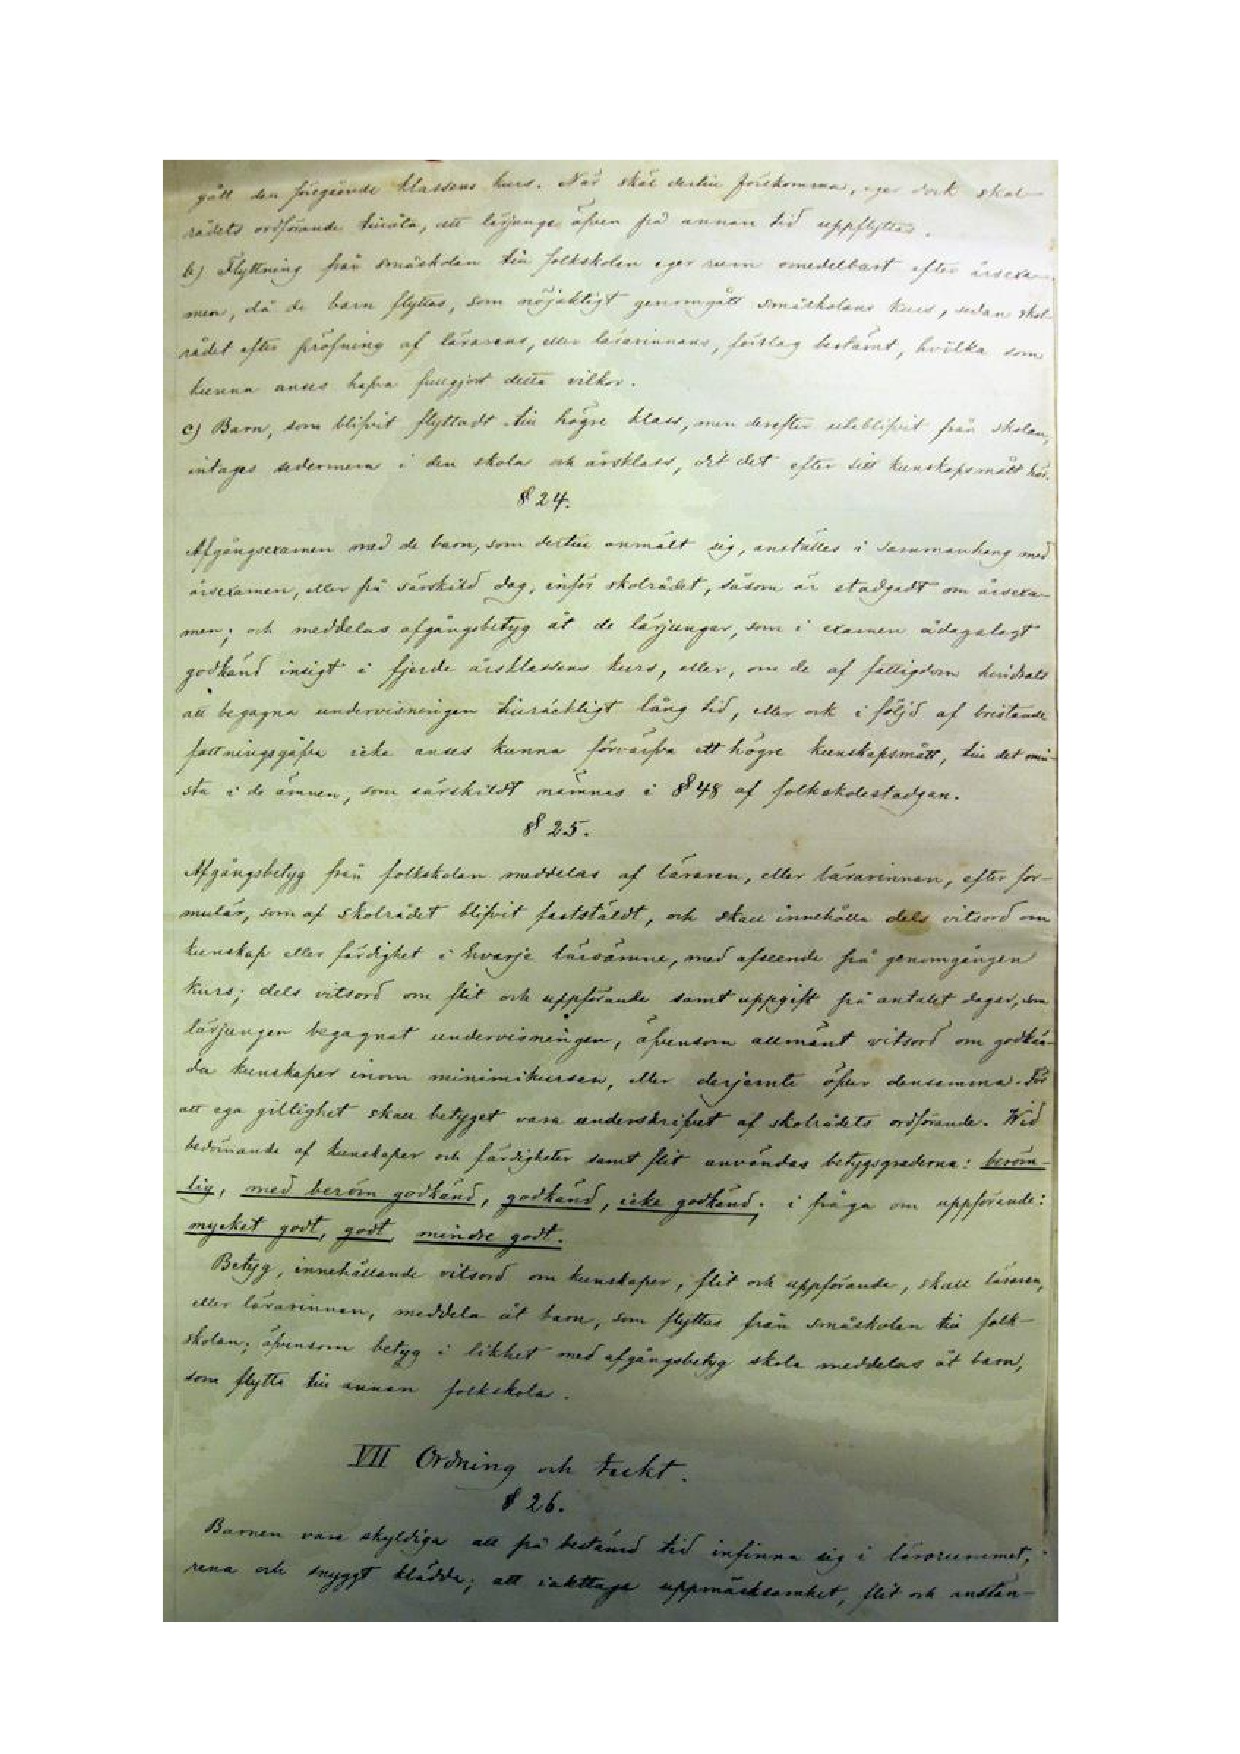 gått den föregående klassens kurs. När skäl dertill förekomma, eger dock skol-
rådets ordförande tillåta, att lärjunge äfven på annan tid uppflyttas.
b) Flyttning från småskolan till folkskolan eger rum omedelbart efter årsexa-
men, då de barn flyttas, som nöjaktigt genomgått småskolans kurs, sedan skol-
rådet efter pröfning af lärarens, eller lärarinnans, förslag bestämt, hvilka som
kunna anses hafva fullgjort detta vilkor.
c) Barn, som blifvit flyttadt till högre klass, men derefter uteblifvit från skolan,
intages sedermera i den skola och årsklass, dit det efter sitt kunskapsmått hör.
§ 24.
Afgångsexamen med de barn, som dertill anmält sig, anställes i sammanhang med
årsexamen, eller på särskild dag, inför skolrådet, såsom är stadgadt om årsexa-
men; och meddelas afgångsbetyg åt de lärjungar, som i examen ådagalagt
godkänd insigt i fjerde årsklassens kurs, eller, om de af fattigdom hindrats
att begagna undervisningen tillräckligt lång tid, eller ock i följd af bristande
fattningsgåfva icke anses kunna förvärfva ett högre kunskapsmått, till det min-
sta i de ämnen, som särskildt nämnes i § 48 af folkskolestadgan.
§ 25.
Afgångsbetyg från folkskolan meddelas af läraren, eller lärarinnan, efter for-
mulär, som af skolrådet blifvit fastställdt, och skall innehålla dels vitsord om
kunskap eller färdighet i hvarje läroämne, med afseende på genomgången
kurs; dels vitsord om flit och uppförande samt uppgift på antalet dagar, som
lärjungen begagnat undervisningen, äfvensom allmänt vitsord om godkän-
da kunskaper inom minimikursen, eller derjemte öfver densamma. För
att ega giltighet skall betyget vara underskrifvet af skolrådets ordförande. Wid
bedömande af kunskaper och färdigheter samt flit användas betygsgraderna: beröm-
lig, med beröm godkänd, godkänd, icke godkänd; i fråga om uppförande:
mycket godt, godt, mindre godt.
Betyg, innehållande vitsord om kunskaper, flit och uppförande, skall läraren,
eller lärarinnan, meddela åt barn, som flyttas från småskolan till folk-
skolan; äfvensom betyg i likhet med afgångsbetyg skola meddelas åt barn,
som flytta till annan folkskola.
VII Ordning och tuckt.
§ 26.
Barnen vare skyldiga att på bestämd tid infinna sig i lärorummet,
rena och snyggt klädda; att iakttaga uppmärksamhet, flit och anstän-